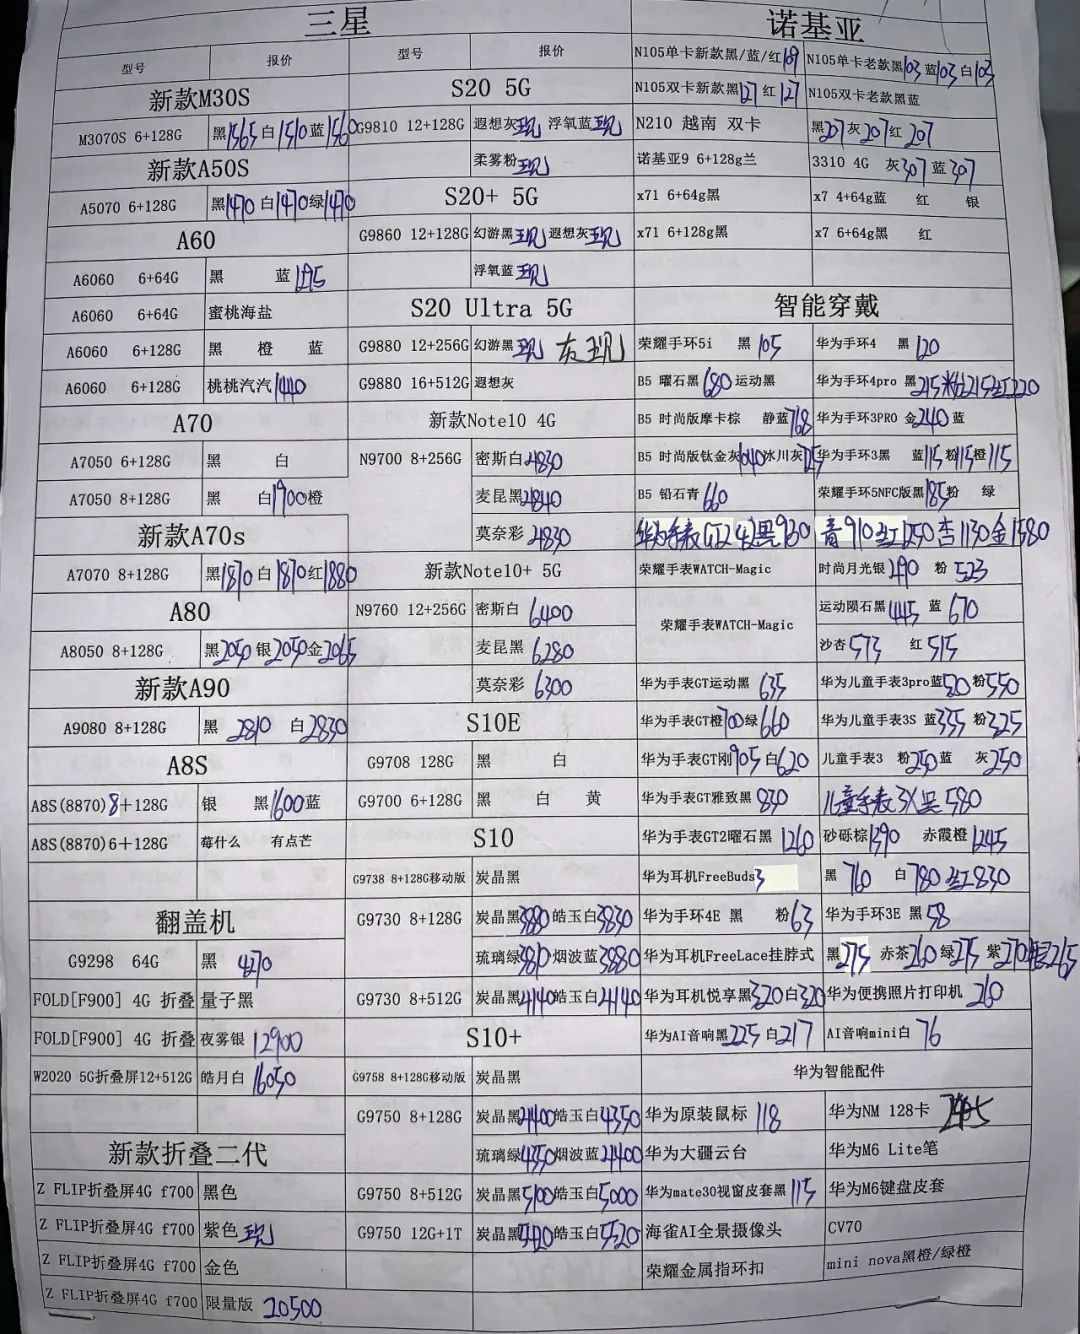 三星
型号 报价 型号 报价
新款M30S
M3070S 6+128G 黑1565 白1510 蓝1560
新款A50S
A5070 6+128G 黑1470 白1470 绿1470
A60
A6060 6+64G 黑 蓝
A6060 6+64G 蜜桃海盐
A6060 6+128G 黑 橙 蓝
A6060 6+128G 桃桃汽汽1440
A70
A7050 6+128G 黑 白
A7050 8+128G 黑 白1900橙
新款A70s
A7070 8+128G 黑1870 白1870 红1880
A80
A8050 8+128G 黑2050 银2050 金2065
新款A90
A9080 8+128G 黑 2810 白2830
A8S
A8S(8870)8+128G 银 黑1600蓝
A8S(8870)6+128G 莓什么 有点芒
翻盖机
G9298 64G 黑 4270
FOLD[F900] 4G 折叠 量子黑
FOLD[F900] 4G 折叠 夜雾银 12900
W2020 5G折叠屏12+512G 皓月白 16050
新款折叠二代
Z FLIP折叠屏4G f700 黑色
Z FLIP折叠屏4G f700 紫色 现
Z FLIP折叠屏4G f700 金色
Z FLIP折叠屏4G f700 限量版 20500
S20 5G
G9810 12+128G 遐想灰现 浮氧蓝现
柔雾粉现
S20+ 5G
G9860 12+128G 幻游黑现 遐想灰现
浮氧蓝现
S20 Ultra 5G
G9880 12+256G 幻游黑现 灰现
G9880 16+512G 遐想灰
新款Note10 4G
N9700 8+256G 密斯白4830
麦昆黑4840
莫奈彩 4830
新款Note10+ 5G
N9760 12+256G 密斯白 6400
麦昆黑 6280
莫奈彩 6300
S10E
G9708 128G 黑 白
G9700 6+128G 黑 白 黄
S10
G9738 8+128G移动版 炭晶黑
G9730 8+128G 炭晶黑3880 皓玉白3830
琉璃绿3810 烟波蓝3880
G9730 8+512G 炭晶黑4140 皓玉白4140
S10+
G9758 8+128G移动版 炭晶黑
G9750 8+128G 炭晶黑4400 皓玉白4350
琉璃绿4350 烟波蓝4400
G9750 8+512G 炭晶黑5100 皓玉白5000
G9750 12G+1T 炭晶黑 皓玉白5520
诺基亚
N105单卡新款黑/蓝/红109 N105单卡老款黑103 蓝103 白103
N105双卡新款黑127 红127 N105双卡老款黑蓝
N210 越南 双卡 黑207 灰207 红 207
诺基亚9 6+128g兰 3310 4G 灰307 蓝307
x71 6+64g黑 x7 4+64g蓝 红 银
x71 6+128g黑 x7 6+64g黑 红
智能穿戴
荣耀手环5i 黑 105 华为手环4 黑 120
B5 曜石黑680 运动黑 华为手环4pro 黑215粉215红220
B5 时尚版摩卡棕 静蓝768 华为手环3PRO 金240蓝
B5 时尚版钛金灰640冰川灰 华为手环3黑 蓝115粉115橙115
B5 铅石青660 荣耀手环5NFC版黑185粉 绿
华为手表GT2 42黑930 青910 红1250 杏1130 金1580
荣耀手表WATCH-Magic 时尚月光银490 粉 523
荣耀手表WATCH-Magic 运动陨石黑445 蓝 670
沙杏 573 红 515
华为手表GT运动黑 635 华为儿童手表3pro蓝520 粉550
华为手表GT橙700绿660 华为儿童手表3S 蓝335 粉325
华为手表GT刚905 白620 儿童手表3 粉250蓝 灰 250
华为手表GT雅致黑830 儿童手表3X 黑 580
华为手表GT2曜石黑 1260 砂砾棕1390 赤霞橙1245
华为耳机FreeBuds3 黑 760 白 780 红830
华为手环4E 黑 粉63 华为手环3E 黑 58
华为耳机FreeLace挂脖式 黑275 赤茶260 绿275 紫270银265
华为耳机悦享黑320白320 华为便携照片打印机 260
华为AI音响黑225 白217 AI音响mini白 76
华为智能配件
华为原装鼠标 118 华为NM 128卡
华为大疆云台 华为M6 Lite笔
华为mate30视窗皮套黑115 华为M6键盘皮套
海雀AI全景摄像头 CV70
荣耀金属指环扣 mini nova黑橙/绿橙